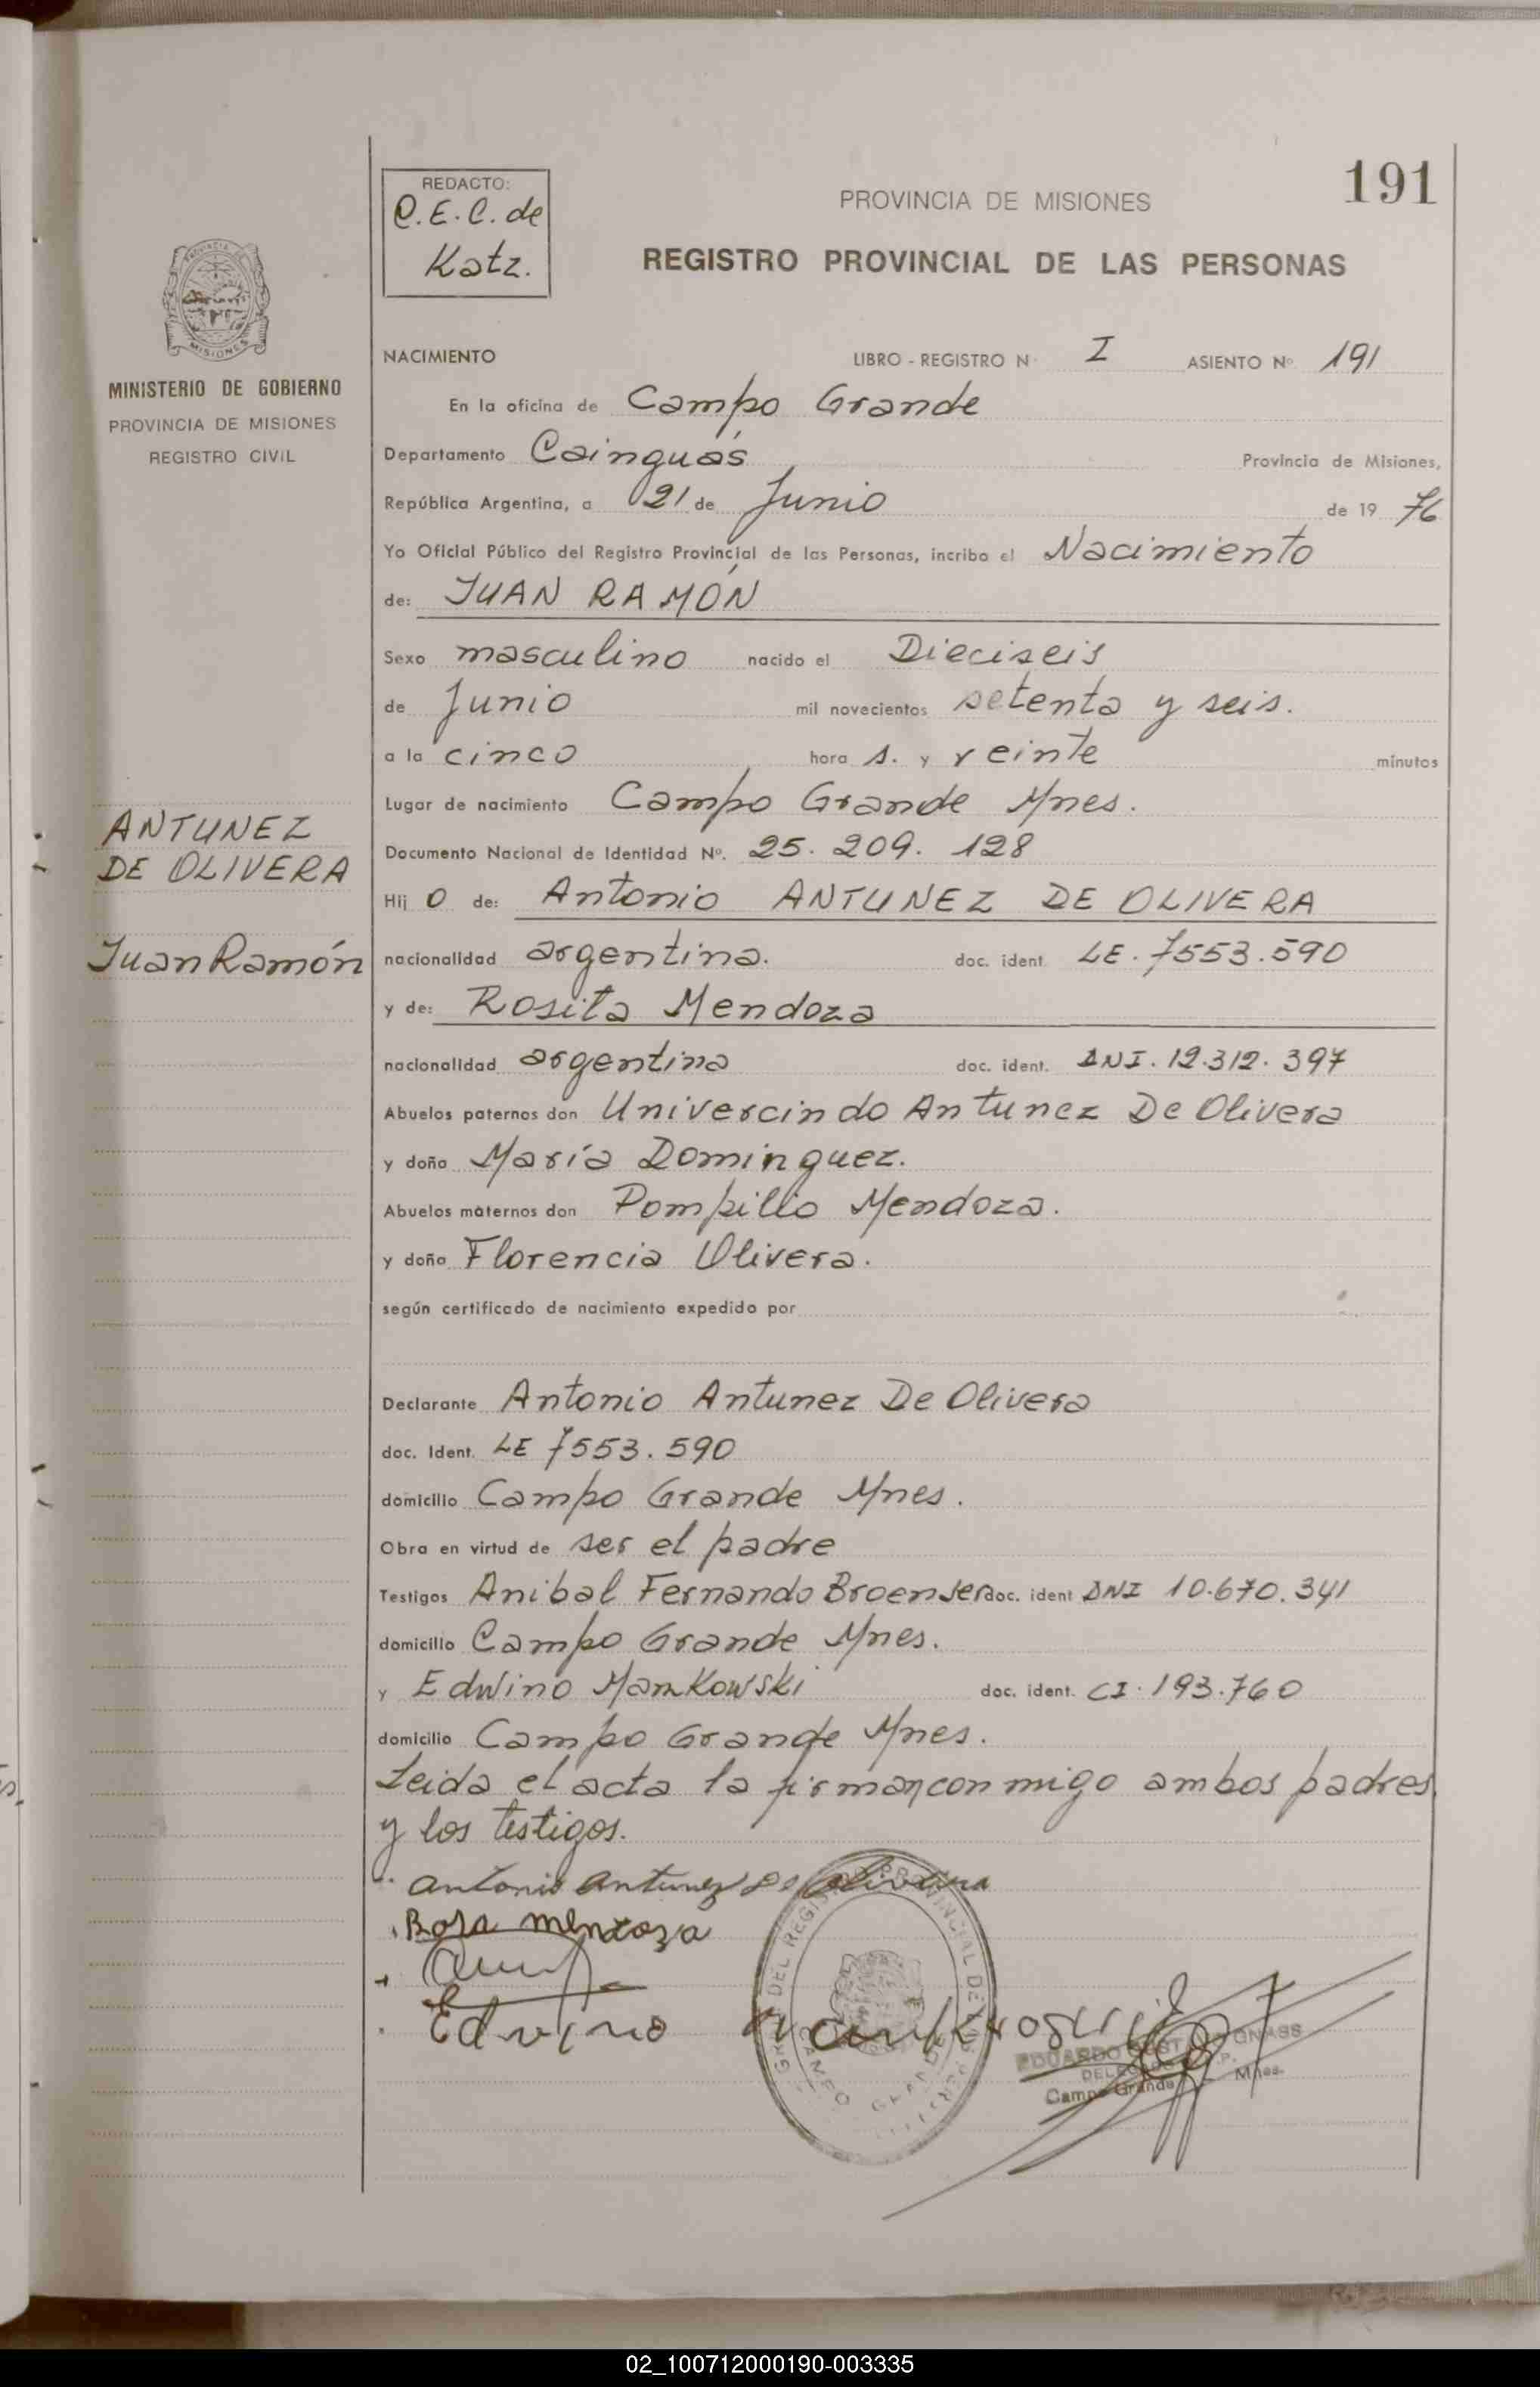 191
REDACTO:
C.E.C. de
Katz.
PROVINCIA DE MISIONES
REGISTRO PROVINCIAL DE LAS PERSONAS
PROVINCIA DE
MISIONES
MINISTERIO DE GOBIERNO
PROVINCIA DE MISIONES
REGISTRO CIVIL
NACIMIENTO LIBRO - REGISTRO N· I ASIENTO Nº 191
En la oficina de Campo Grande
Departamento Cainguás Provincia de Misiones,
República Argentina, a 21 de Junio de 19 76
Yo Oficial Público del Registro Provincial de las Personas, incribo el Nacimiento
de: JUAN RAMÓN
Sexo masculino nacido el Dieciseis
de Junio mil novecientos setenta y seis.
a la cinco hora s. y veinte minutos
Lugar de nacimiento Campo Grande Mnes.
Documento Nacional de Identidad Nº. 25. 209. 128
ANTUNEZ
DE OLIVERA
Juan Ramón
Hij o de: Antonio ANTUNEZ DE OLIVERA
nacionalidad argentina. doc. ident. LE. 7553.590
y de: Rosita Mendoza
nacionalidad argentina doc. ident. DNI. 12.312. 397
Abuelos paternos don Univercindo Antunez De Olivera
y doña María Dominguez.
Abuelos maternos don Pompilio Mendoza.
y doña Florencia Olivera.
según certificado de nacimiento expedido por
Declarante Antonio Antunez De Olivera
doc. Ident. LE 7553. 590
domicilio Campo Grande Mnes.
Obra en virtud de ser el padre
Testigos Anibal Fernando Broenser doc. ident DNI 10.670.341
domicilio Campo Grande Mnes.
y Edwino Mankowski doc. ident. CI. 193.760
domicilio Campo Grande Mnes.
Leida el acta la firman conmigo ambos padres
y los testigos.
Antonio Antunez De Olivera
Rosa Mendoza
Edvino
DEL REGISTRO PROVINCIAL DE
CAMPO GRANDE
EDUARDO GNASS
Campo Grande Mnes.
02_100712000190-003335